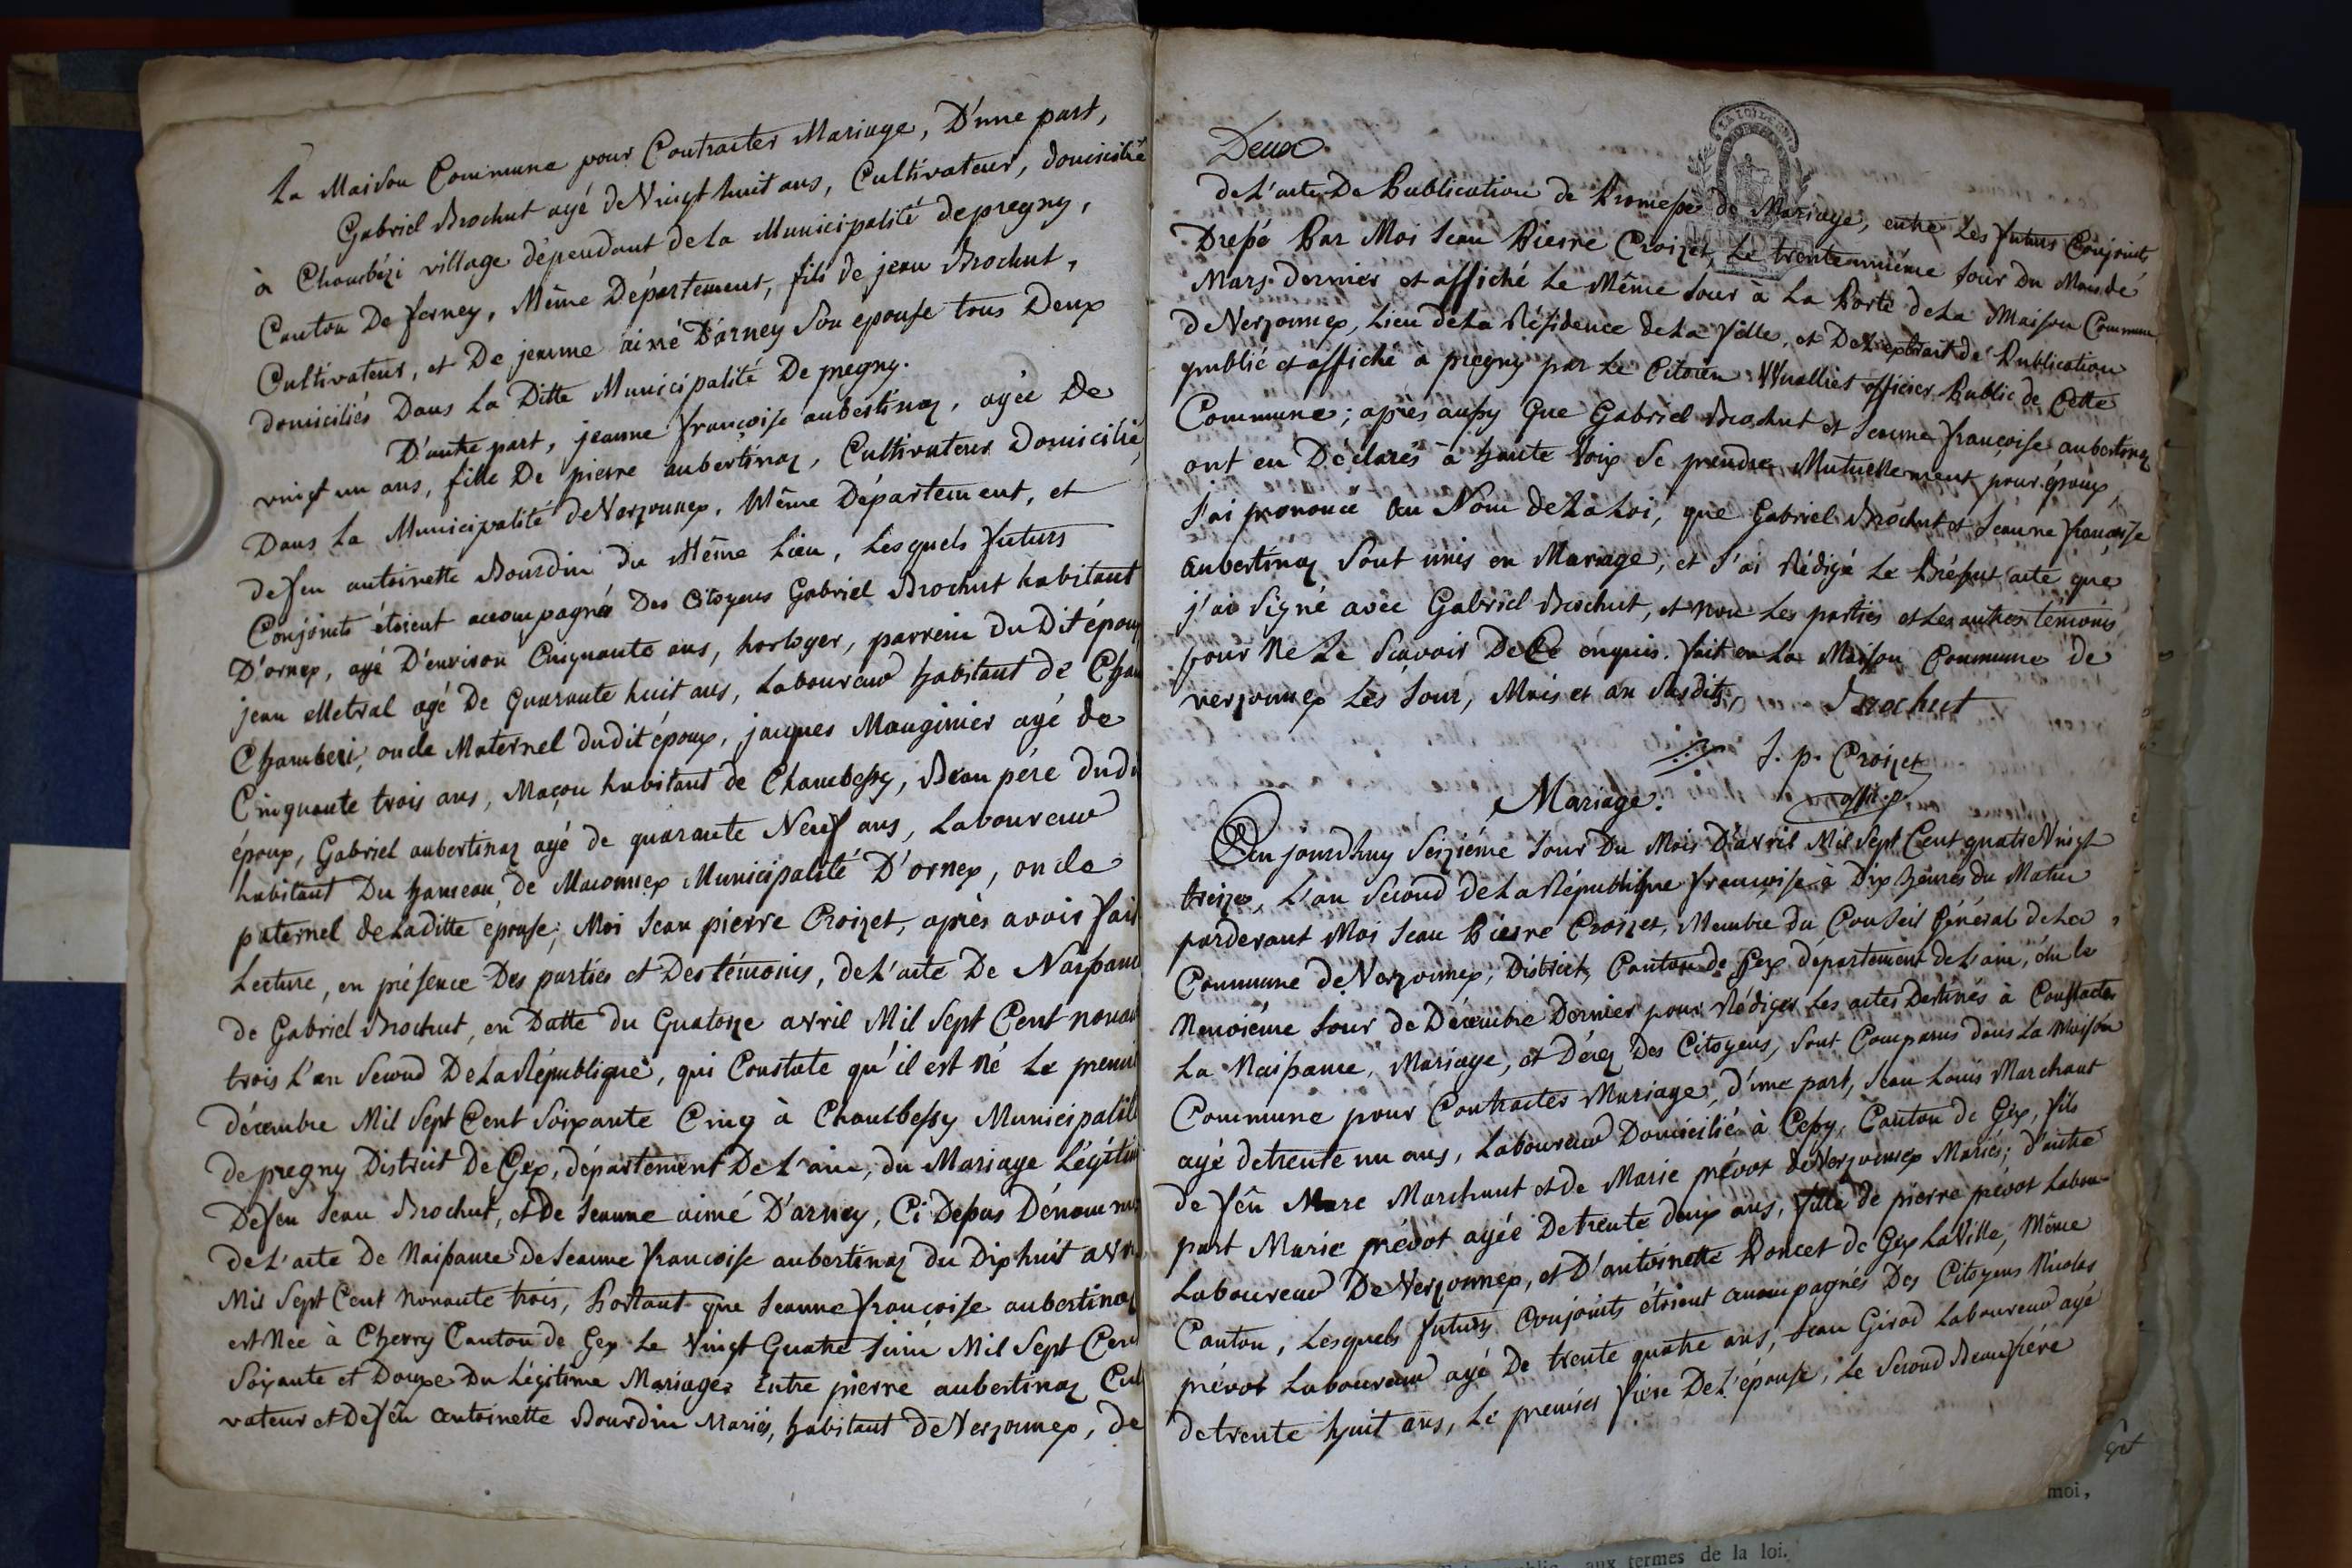 La Maison Commune pour Contracter Mariage, D'une part,
Gabriel Brochut agé de Vingt huit ans, Cultivateur, domicilié
à Chambézi village dépendant de la Municipalité de pregny,
Canton De ferney, Même Département, fils de jean Brochut,
Cultivateur, et De jeanne aimé D'arney Son epouse tous Deux
domiciliés Dans La Ditte Municipalité De pregny.
D'autre part, jeanne françoise aubertinaz, agée De
vingt un ans, fille De pierre aubertinaz, Cultivateur Domicilié,
Dans La Municipalité de Verzonnex, Même Département, et
defeu antoinette Bourdin du Même Lieu, Lesquels futurs
Conjoints étoient accompagnés Des Citoyens Gabriel Brochut habitant
D'ornex, agé D'environ Cinquante ans, horloger, parrein du Dit époux
jean Metral agé De Quarante huit ans, Laboureur habitant de Cham
Chamberi, oncle Maternel dudit époux, jacques Mauginier agé de
Cinquante trois ans, Maçon habitant de Chambessy, Beau pére dudi
époux, Gabriel aubertinaz agé de quarante Neuf ans, Laboureur
habitant Du hameau de Maconnex Municipalité D'ornex, oncle
paternel de Laditte epouse; Moi Jean pierre Croizet, après avoir fait
Lecture, en présence Des parties et Des témoins, de L'acte De Naissanc
de Gabriel Brochut, en Datte du Quatorze avril Mil Sept Cent nonan
trois L'an Second De La République, qui Constate qu'il est Né Le premie
décembre Mil Sept Cent Soixante Cinq à Chambessy Municipalité
de pregny District De Gex, département De L'ain, du Mariage Légitim
Defeu Jean Brochut, et De Jeanne aimé D'arney, Ci Dessus Dénommé
de L'acte De Naissance de Jeanne françoise aubertinaz du Dix huit avr
Mil Sept Cent Nonante trois, Portant que Jeanne françoise aubertinaz
est Née à Cherry Canton de Gex Le Vingt Quatre Juin Mil Sept Cen
Soixante et Douze Du Légitime Mariage Entre pierre aubertinaz Cul
vateur et De feû antoinette Bourdin Mariés, habitant de Verzonnex, de
Deux
de L'acte De Publication de Promesse de Mariage, entre Les futurs Conjoints
Dressé Par Moi Jean Pierre Croizet, Le trente unième Jour Du Mois de
Mars dernier et affiché Le Même Jour à La Porte de La Maison Commune
de Verzonnex, Lieu de La Résidence de La fille, et De L'extrait de Publication
publié et affiché à pregny par Le Citoien Vuallet officier Public de Cette
Commune; après aussy Que Gabriel Brochut et Jeanne françoise aubertinaz
ont eu Déclarés à haute Voix Se prendre Mutuellement pour époux,
J'ai prononcé au Nom de La Loi, que Gabriel Brochut et Jeanne françoise
aubertinaz Sont unis en Mariage, et J'ai Rédigé Le Présent acte que
j'ai Signé avec Gabriel Brochut, et non Les parties et Les autres témoins
pour Ne Le Sçavoir De Ce enquis. fait en La Maison Commune de
verzonnex Les Jour, Mois et an Susdits, Brochut
J. p. Croizet
offi. p.
Mariage.
Aujourdhuy Seizième Jour Du Mois D'avril Mil Sept Cent quatre Vingt
treize, L'an Second de La République françoise à Dix heures du Matin
pardevant Moi Jean Pierre Croizet, Membre du Conseil Général de La
Commune de Verzonnex, District, Canton de Gex département de L'ain, élu le
Neuvième Jour de Décembre Dernier pour Rédiger Les actes Destinés à Constater
La Naissance, Mariage, et Décez Des Citoyens, Sont Comparus dans La Maison
Commune pour Contracter Mariage, d'une part, Jean Louis Marchant
agé de trente un ans, Laboureur Domicilié à Cessy, Canton de Gex, fils
de feû Marc Marchant et de Marie prévot de Verzonnex Mariés; d'autre
part Marie prévot agée De trente deux ans, fille de pierre prévot Labou-
Laboureur De Verzonnex, et D'antoinette Poncet de Gex La Ville, Même
Canton, Lesquels futurs Conjoints étoient accompagnés Des Citoyens Nicolas
prévot Laboureur agé De trente quatre ans, Jean Girod Laboureur agé
de trente huit ans, Le premier frère De L'épouse, Le Second Beaufrére
moi,
aux termes de la loi.